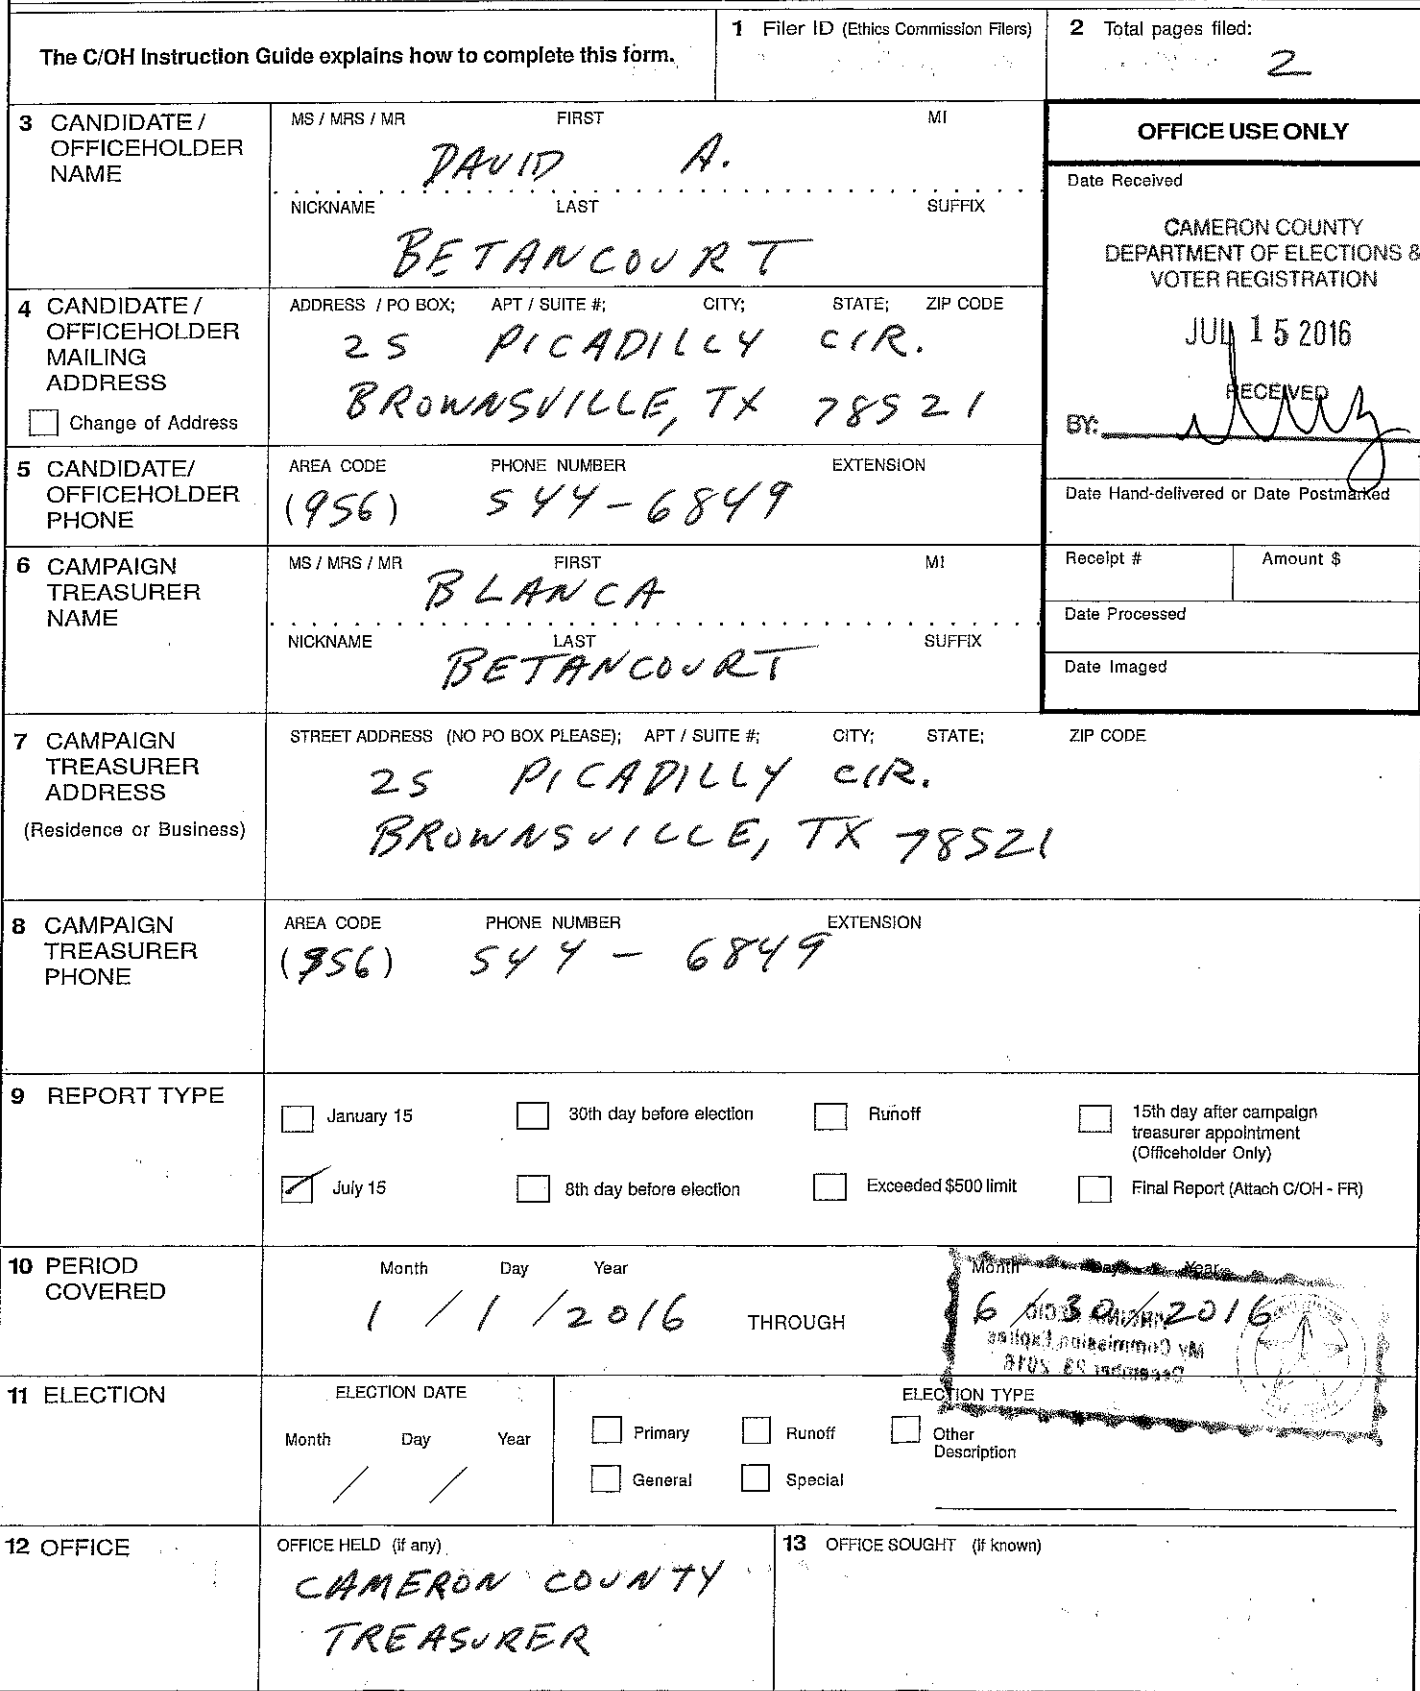 The C/OH Instruction Guide explains how to complete this form.
1 Filer ID (Ethics Commission Filers)
2 Total pages filed:
2
3 CANDIDATE / OFFICEHOLDER NAME
MS / MRS / MR FIRST MI
DAVID A.
NICKNAME LAST SUFFIX
BETANCOURT
OFFICE USE ONLY
Date Received
CAMERON COUNTY
DEPARTMENT OF ELECTIONS &
VOTER REGISTRATION
JUL 15 2016
RECEIVED
BY:
Date Hand-delivered or Date Postmarked
Receipt # Amount $
Date Processed
Date Imaged
4 CANDIDATE / OFFICEHOLDER MAILING ADDRESS
Change of Address
ADDRESS / PO BOX; APT / SUITE #; CITY; STATE; ZIP CODE
25 PICADILLY CIR.
BROWNSVILLE, TX 78521
5 CANDIDATE/ OFFICEHOLDER PHONE
AREA CODE PHONE NUMBER EXTENSION
(956) 544-6849
6 CAMPAIGN TREASURER NAME
MS / MRS / MR FIRST MI
BLANCA
NICKNAME LAST SUFFIX
BETANCOURT
7 CAMPAIGN TREASURER ADDRESS
(Residence or Business)
STREET ADDRESS (NO PO BOX PLEASE); APT / SUITE #; CITY; STATE; ZIP CODE
25 PICADILLY CIR.
BROWNSVILLE, TX 78521
8 CAMPAIGN TREASURER PHONE
AREA CODE PHONE NUMBER EXTENSION
(956) 544 - 6849
9 REPORT TYPE
January 15 30th day before election Runoff 15th day after campaign treasurer appointment (Officeholder Only)
July 15 8th day before election Exceeded $500 limit Final Report (Attach C/OH - FR)
10 PERIOD COVERED
Month Day Year
1 / 1 / 2016 THROUGH
Month Day Year
6 / 30 / 2016
My Commission Expires
December 23, 2016
11 ELECTION
ELECTION DATE
Month Day Year
/ /
ELECTION TYPE
Primary Runoff Other Description
General Special
12 OFFICE
OFFICE HELD (if any)
CAMERON COUNTY
TREASURER
13 OFFICE SOUGHT (if known)